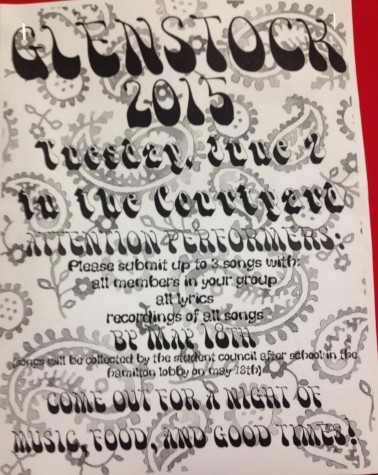 GLENSTOCK
2015
Tuesday, June 2
in the Courtyard
ATTENTION PERFORMERS:
Please submit up to 3 songs with:
all members in your group
all lyrics
recordings of all songs
BY MAY 18TH
(songs will be collected by the student council after school in the
hamilton lobby on may 18th)
COME OUT FOR A NIGHT OF
MUSIC, FOOD, AND GOOD TIMES!